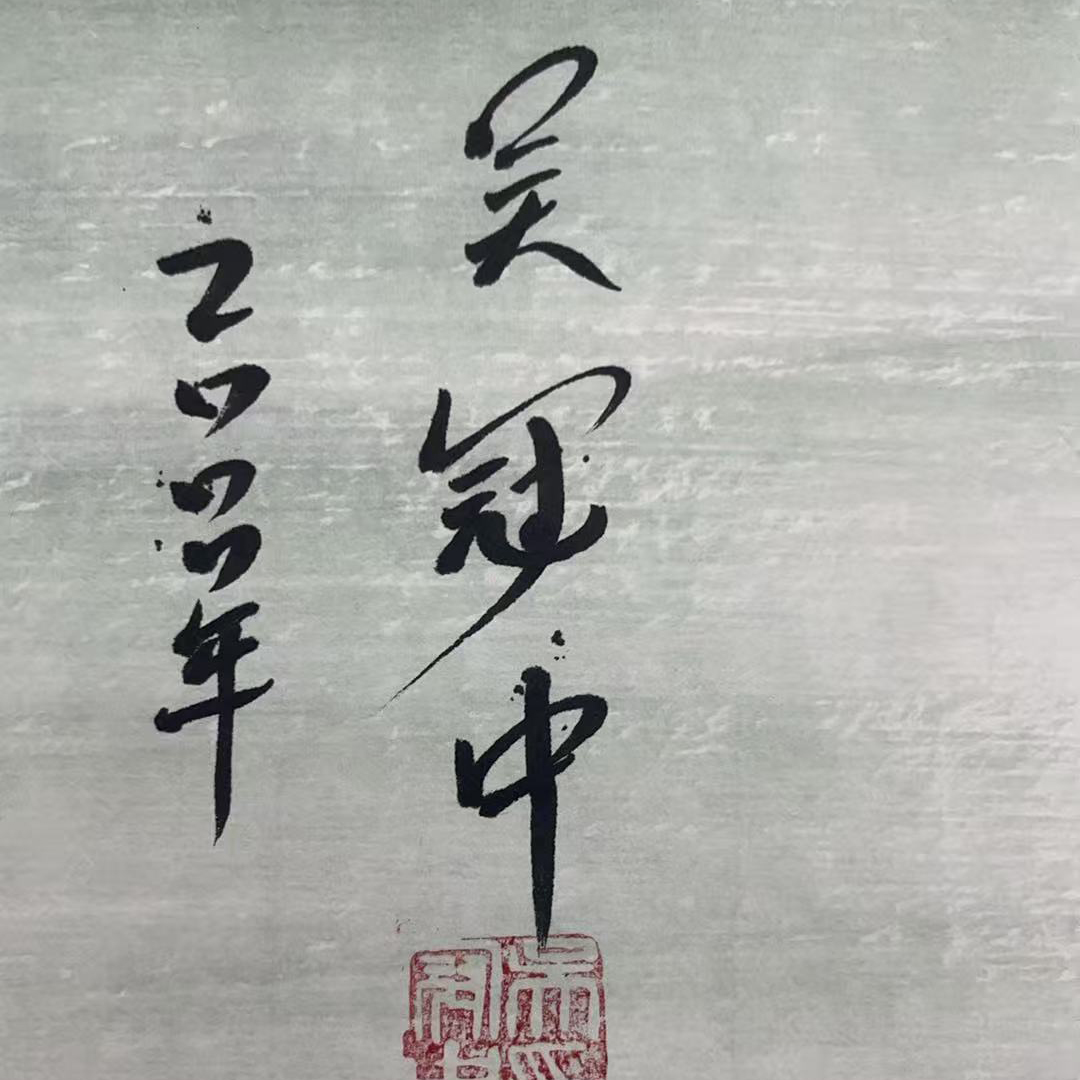 吴冠中
二〇〇〇年